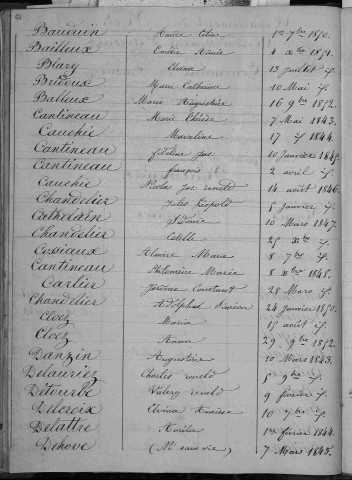 Bauduin Aimée Céline 1er 7bre 1850.
Bailleux Emélie Aimée 4 Xbre 1851.
Blary Elvina 13 juillet if.
Bridoux Marie Catherine 10 Mai if.
Bailleux Marie Augustine 16 9bre 1852.
Cantineau Marie Thérèse 7 Mai 1843.
Cauchie Marceline 17 if 1844.
Cantineau Fidéline Jos. 10 Janvier 1845.
Cantineau François 2 avril if.
Cauchie Nicolas Jos. renold 14 août 1846.
Chandelier Jules Léopold 8 Janvier if.
Catholain 10 Mars 1847.
Chandelier Odille 25 Xbre if.
Cossiaux Almire Marie 8 7bre if.
Cantineau Philomène Marie 8 Xbre 1848.
Carlier Jérôme Constant 28 Mars if.
Chandelier Adolphe Siméon 24 Janvier 1850.
Cloez Maria 15 août if.
Cloez Anna 29 9bre 1852.
Danzin Augustine 10 Mars 1843.
Delauriez Charles renold 5 9bre if.
Détourbe Valéry renold 9 février if.
Delcroix Elvina Anaïse 10 7bre if.
Delattre Aurélie 1er février 1844.
Dehove (Né sans vie) 7 Mars 1845.